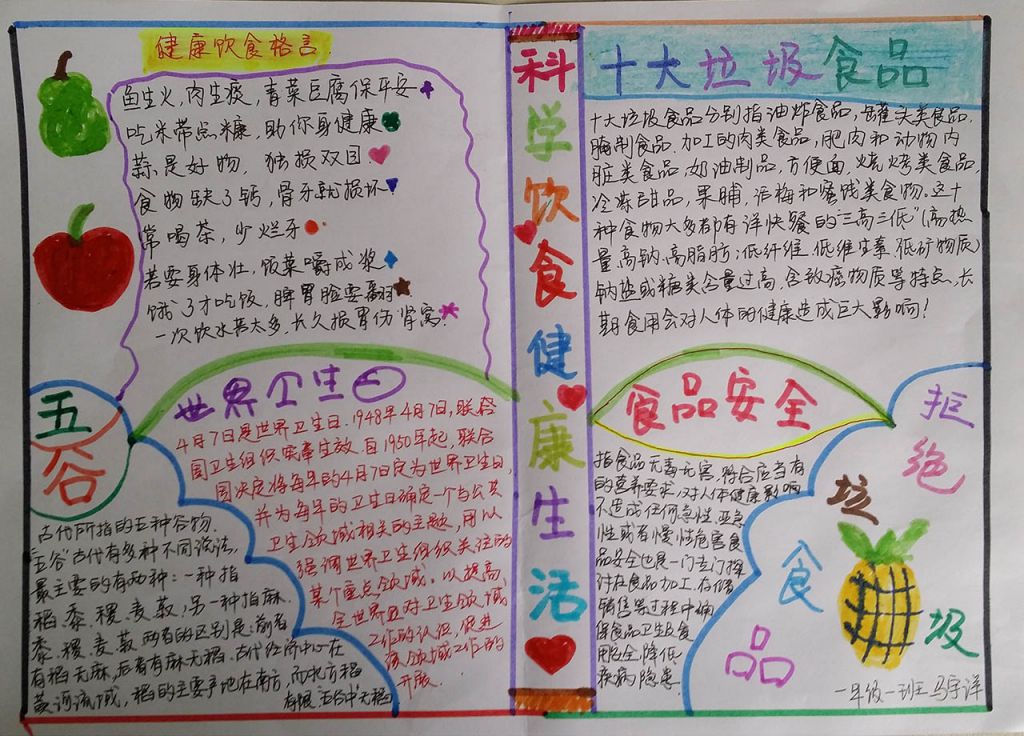 健康饮食格言
鱼生火,肉生痰,青菜豆腐保平安
吃米带点糠,助你身健康
蒜是好物,独损双目
食物缺了钙,骨牙就损坏
常喝茶,少烂牙
若要身体壮,饭菜嚼成浆
饿了才吃饭,脾胃脸要翻
一次饮水莫太多,长久损胃伤肾窝
世界卫生日
4月7日是世界卫生日。1948年4月7日,联合
国卫生组织宪章生效。自1950年起,联合
国决定将每年的4月7日定为世界卫生日,
并为每年的卫生日确定一个与公共
卫生领域相关的主题,用以
强调世界卫生组织关注的
某个重点领域。以提高
全世界对卫生领域
工作的认识,促进
该领域工作的
开展。
五谷
古代所指的五种谷物。
“五谷”古代有多种不同说法,
最主要的有两种:一种指
稻、黍、稷、麦、菽;另一种指麻、
黍、稷、麦、菽。两者的区别是:前者
有稻无麻,后者有麻无稻。古代经济中心在
黄河流域,稻的主要产地在南方,而北方稻
有限,“五谷”中无稻
科学饮食健康生活
十大垃圾食品
十大垃圾食品分别指油炸食品,罐头类食品,
腌制食品,加工的肉类食品,肥肉和动物内
脏类食品,奶油制品,方便面,烧烤类食品,
冷冻甜品,果脯,话梅和蜜饯类食物。这十
种食物大多都有洋快餐的“三高三低”(高热
量、高钠、高脂肪;低纤维、低维生素、低矿物质)
钠盐或糖类含量过高,含致癌物质等特点,长
期食用会对人体的健康造成巨大影响!
食品安全
指食品无毒无害,符合应当有
的营养要求,对人体健康影响
不造成任何急性、亚急
性或者慢性危害。食
品安全也是一门专门探
讨在食品加工、存储、
销售等过程中确
保食品卫生及食
用安全,降低
疾病隐患
拒绝垃圾食品
一年级一班 马宇洋